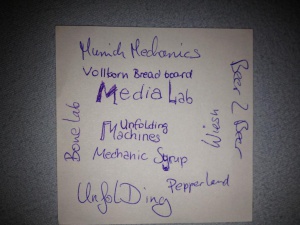 Munich Mechanics
Vollborn Breadboard
Media Lab
Unfolding
Machines
Mechanic Syrup
UnfolDing
Pepperland
Bone Lab
Wiesn
Beer 2 Beer